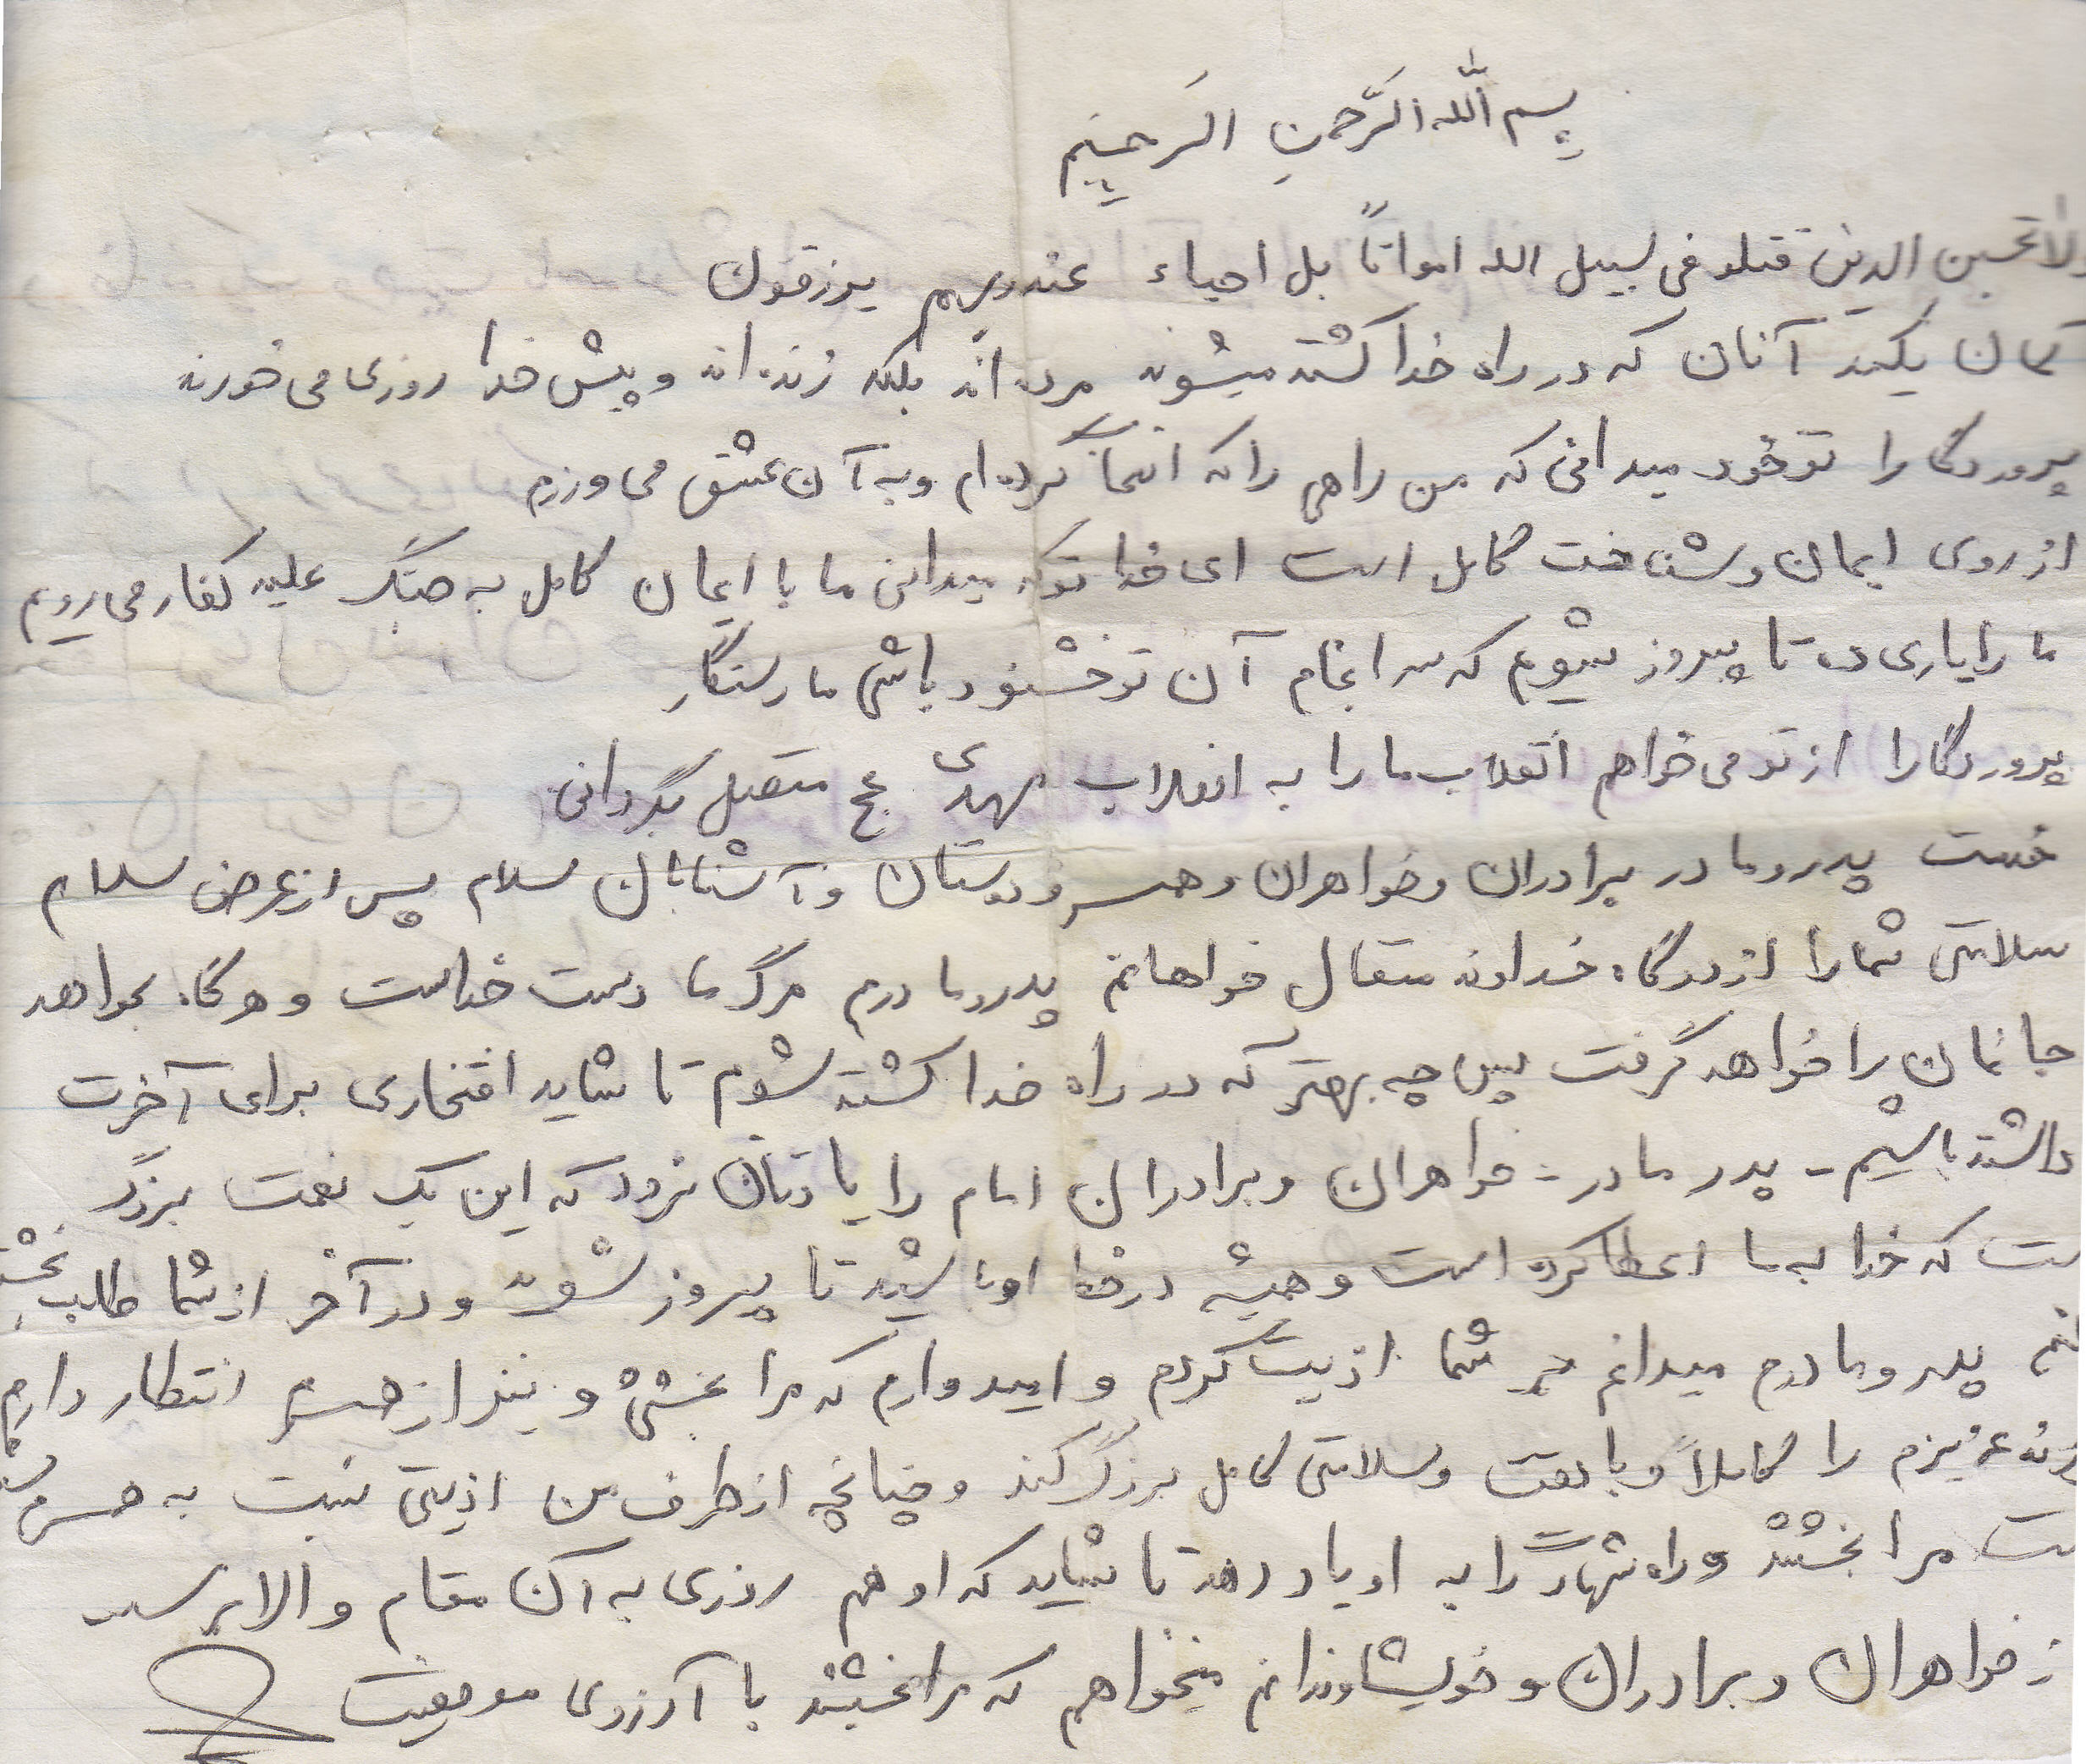 بسم الله الرَّحمنِ الرَحیم
ولا تحسبن الذین قتلو فی سبیل الله امواتاً بل احیاء عندربهم یرزقون
گمان نکنید آنان که در راه خدا کشته میشوند مرده اند بلکه زنده اند و پیش خدا روزی می خورند
پروردگارا تو خود میدانی که من راهی را که انتخاب کرده ام و به آن عشق می ورزم
از روی ایمان و شناخت کامل است ای خدا تو که میدانی ما با ایمان کامل به جنگ علیه کفار می رویم
ما را یاری ده تا پیروز شویم که سرانجام آن تو خشنود باشی ما رستگار
پروردگارا از تو می خواهم انقلاب ما را به انقلاب مهدی عج متصل بگردانی
خدمت پدر و مادر برادران و خواهران و همسر و دوستان و آشنایان سلام پس از عرض سلام
سلامتی شما را از درگاه خداوند متعال خواهانم پدر و مادرم مرگ ما دست خداست و هرگاه بخواهد
جانمان را خواهد گرفت پس چه بهتر که در راه خدا کشته شوم تا شاید افتخاری برای آخرت
داشته باشیم - پدر مادر - خواهران و برادران امام را یادتان نرود که این یک نعمت بزرگ
ست که خدا به ما اعطا کرده است و همیشه در خط او باشید تا پیروز شوید و در آخر از شما طلب بخشش
پدر و مادرم میدانم شما اذیت کردم و امیدوارم که مرا ببخشید و نیز از همسرم انتظار دارم
عزیزم را کاملاً و با دقت و سلامتی کامل بزرگ کند و چنانچه از طرف من اذیتی نسبت به همسرم
ست مرا ببخشد و راه شهادت را به او یاد دهد تا شاید که او هم روزی به آن مقام والا برسد
ز خواهران و برادران و خویشاوندانم میخواهم که مرا ببخشند با آرزوی موفقیت